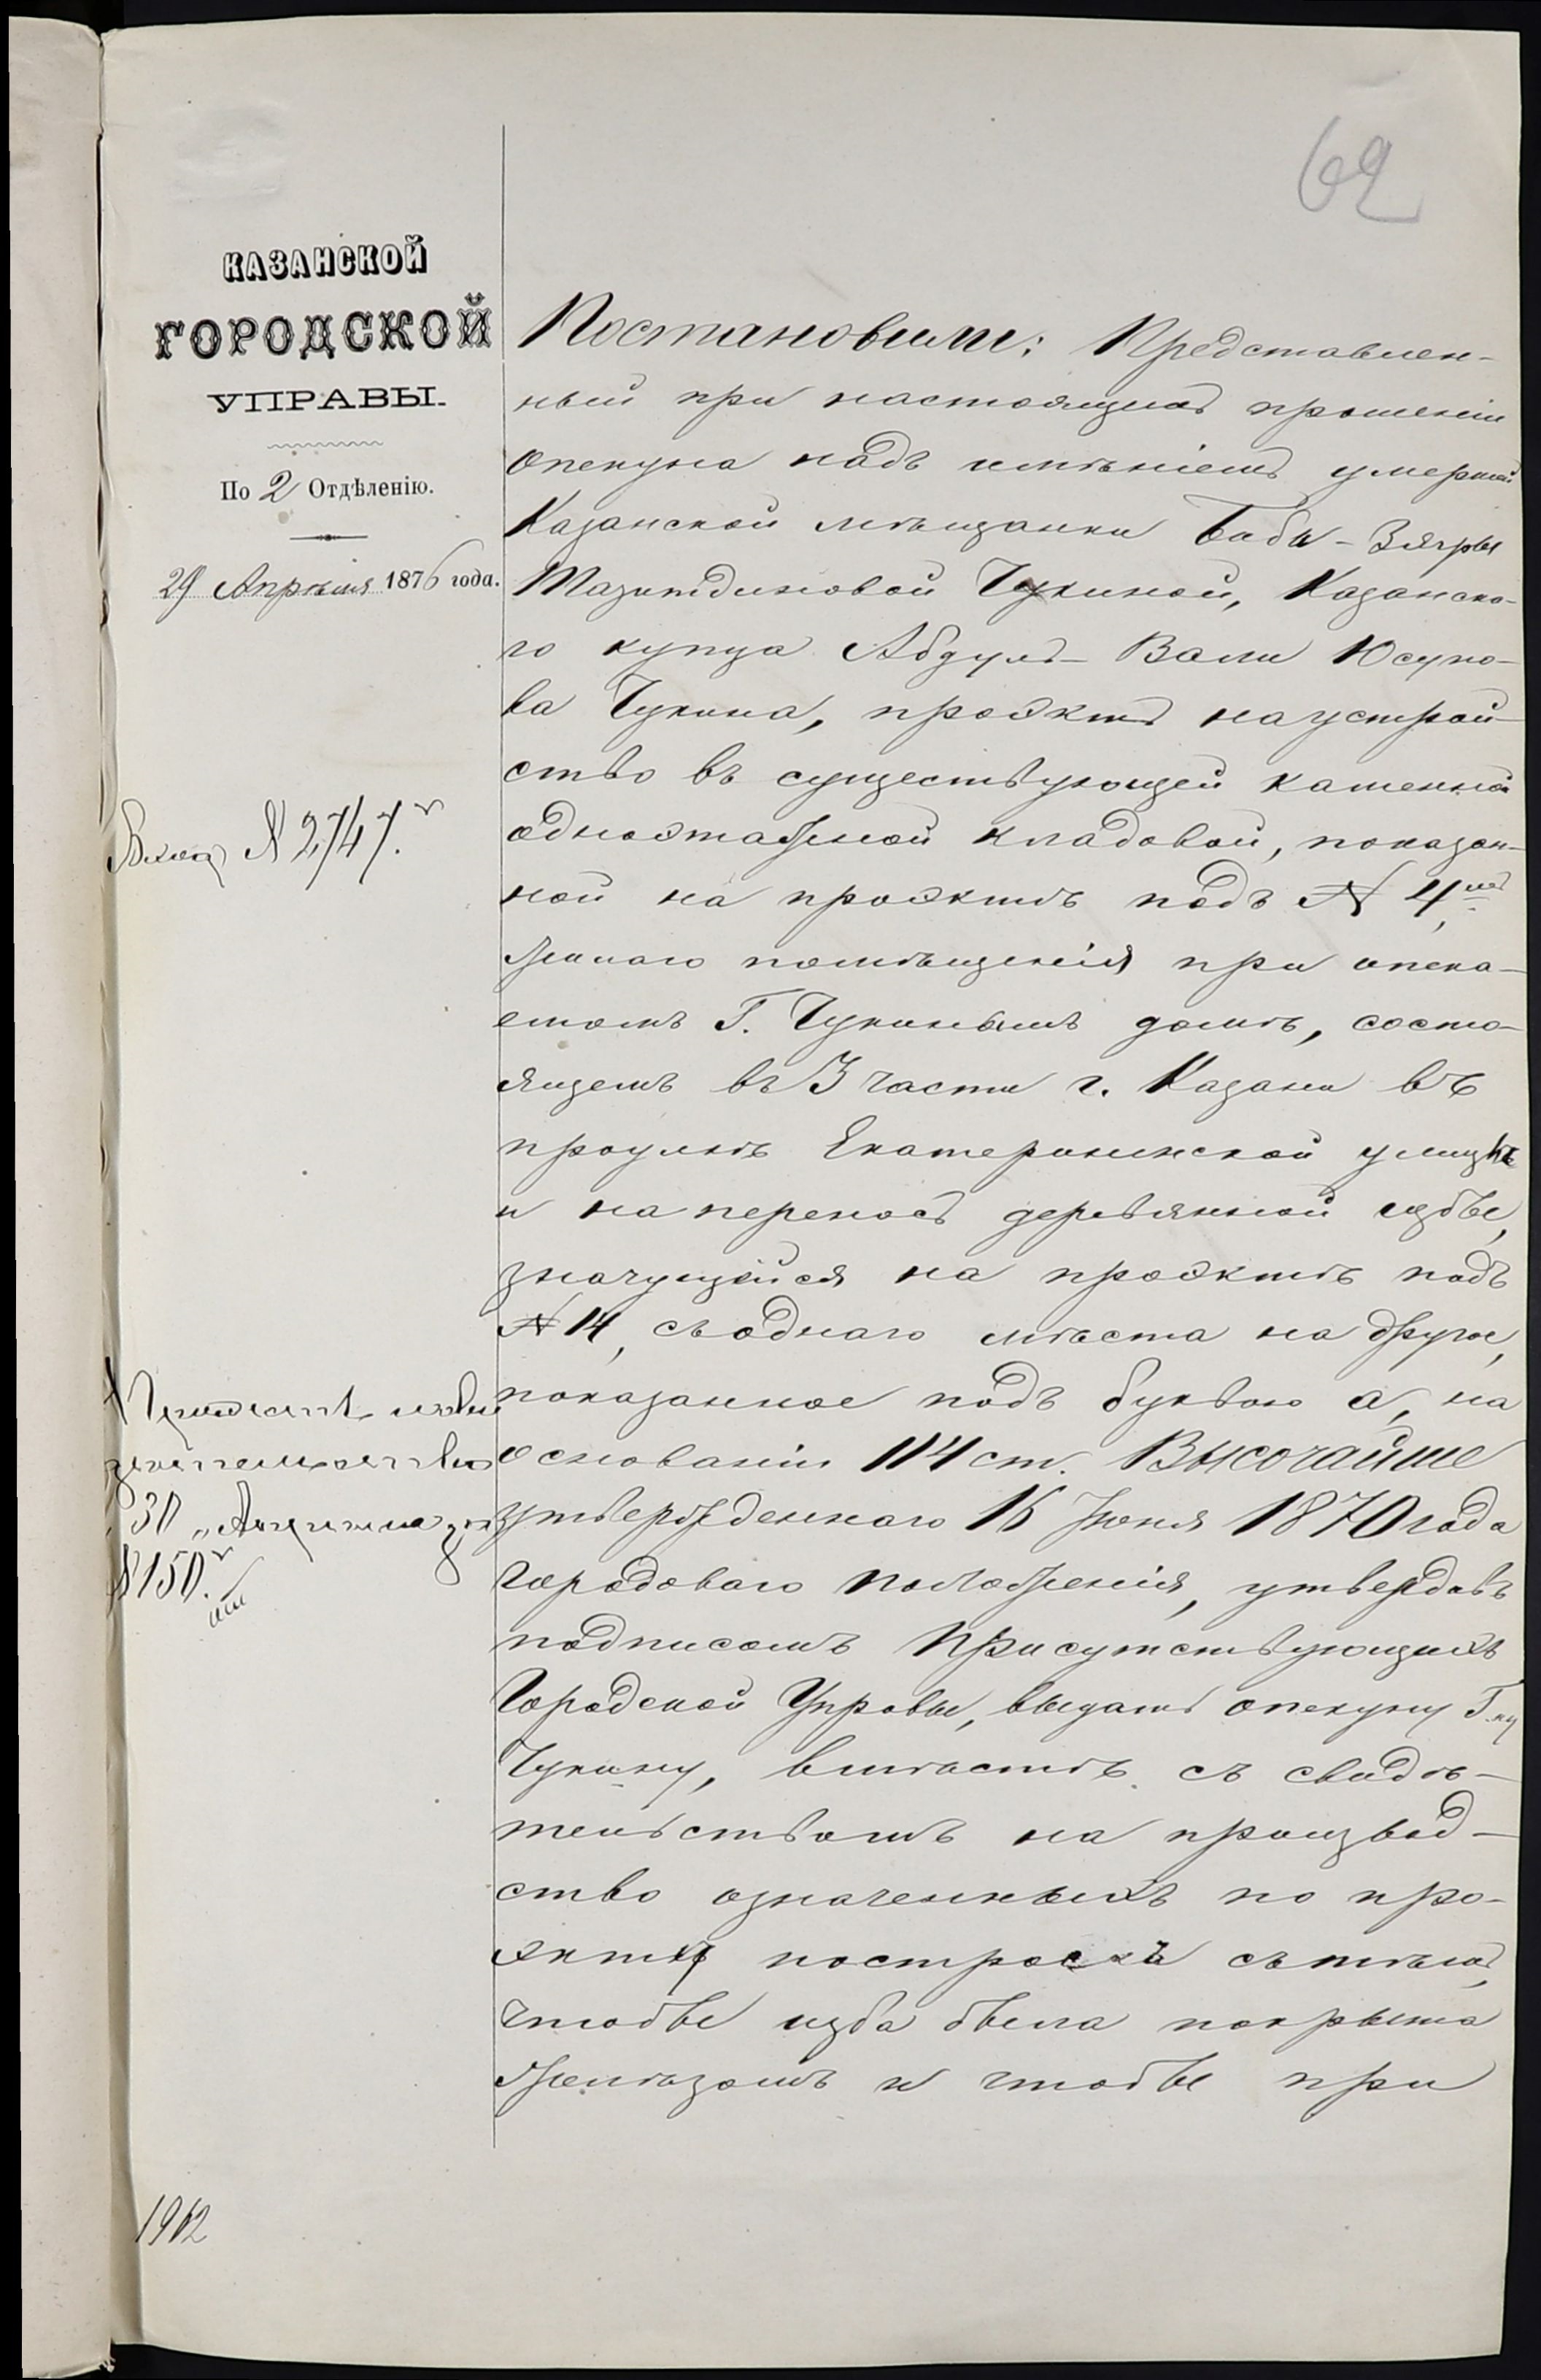 62
КАЗАНСКОЙ
ГОРОДСКОЙ
УПРАВЫ.
По 2 Отдѣленію.
29 Апрѣля 1876 года.
Вход № 2747.
30 Апрѣля за
№ 150.
1962
Постановили: Представлен-
ный при настоящемъ прошеніи
опекуна надъ имѣніемъ умершей
Казанской мѣщанки Биби-Зягры
Мазитдиновой Чукиной, Казанска-
го купца Абдулъ-Вали Юсупо-
ва Чукина, проэктъ на устрой-
ство въ существующей каменной
одноэтажной кладовой, показан-
ной на проэктѣ подъ № 4мъ,
жилаго помѣщенія при опека-
емомъ Г. Чукинымъ домѣ, состо-
ящемъ въ 3 части г. Казани въ
проулкѣ Екатерининской улицы
и на переносъ деревянной избы,
значущейся на проэктѣ подъ
№ 14, съ одного мѣста на другое,
показанное подъ буквою а, на
основаніи 114 ст. Высочайше
утвержденнаго 16 Іюня 1870 года
Городоваго положенія, утвердивъ
подписомъ присутствующихъ
Городской Управы, выдать опекуну Г.ну
Чукину, вмѣстѣ съ свидѣ-
тельствомъ на производ-
ство означенныхъ по про-
экту построекъ съ тѣмъ,
чтобы изба была покрыта
желѣзомъ и чтобы при